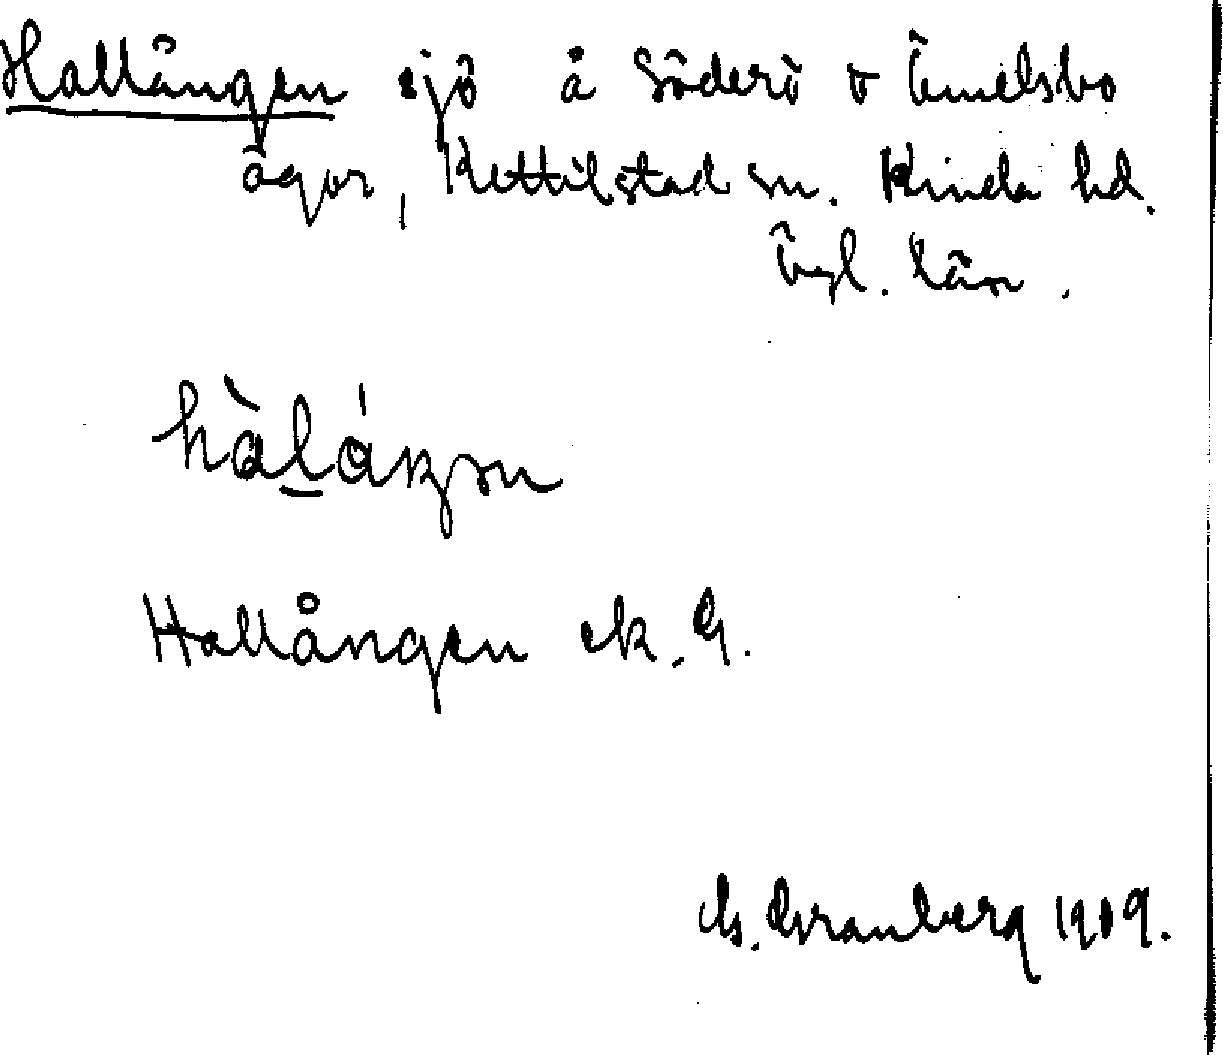 Hallången sjö å Söderö o Ämelsbo
ägor, Kettilstad sn. Kinda hd.
Ögl. län.
hàl̠áŋən
Hallången ek. G.
G. Granberg 1909.